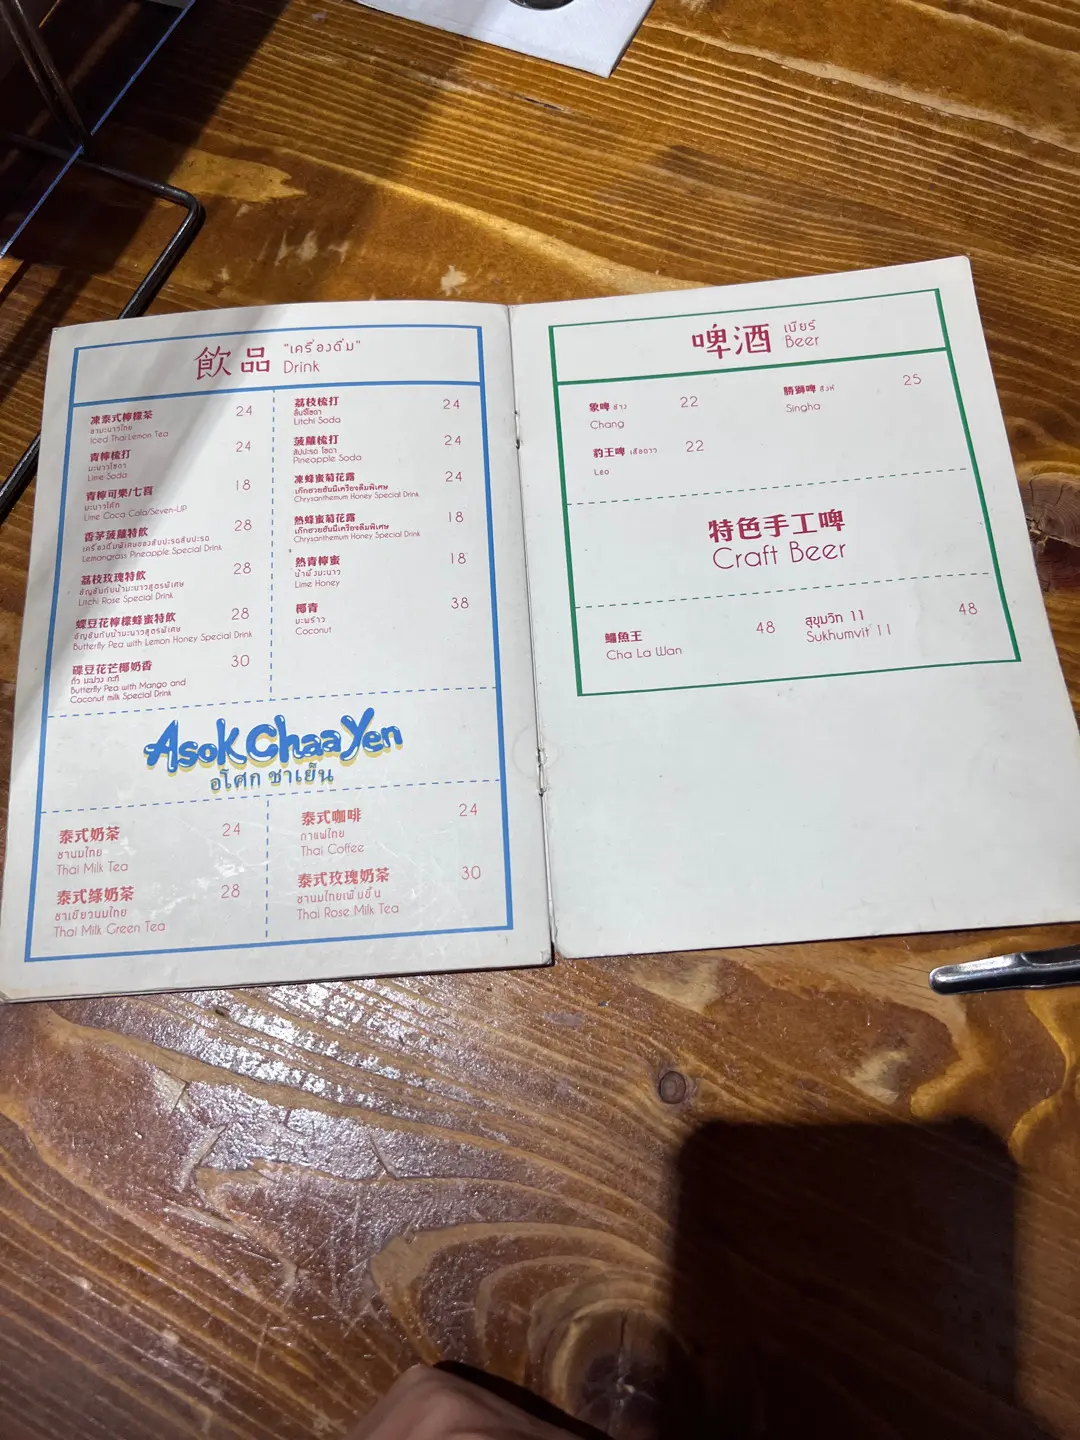 飲品 "เครื่องดื่ม"
Drink
凍泰式檸檬茶 24
ชามะนาวไทย
Iced Thai Lemon Tea
青檸梳打 24
มะนาวโซดา
Lime Soda
青檸可樂/七喜 18
มะนาวโค้ก
Lime Coca Cola/Seven-UP
香茅菠蘿特飲 28
เครื่องดื่มพิเศษของสับปะรดสับปะรด
Lemongrass Pineapple Special Drink
荔枝玫瑰特飲 28
อัญชันกับน้ำมะนาวสูตรพิเศษ
Litchi Rose Special Drink
蝶豆花檸檬蜂蜜特飲 28
อัญชันกับน้ำมะนาวสูตรพิเศษ
Butterfly Pea with Lemon Honey Special Drink
碟豆花芒椰奶香 30
ถั่ว มะม่วง กะทิ
Butterfly Pea with Mango and
Coconut milk Special Drink
荔枝梳打 24
ลิ้นจี่โซดา
Litchi Soda
菠蘿梳打 24
สับปะรด โซดา
Pineapple Soda
凍蜂蜜菊花露 24
เก๊กฮวยฮันนี่เครื่องดื่มพิเศษ
Chrysanthemum Honey Special Drink
熱蜂蜜菊花露 18
เก๊กฮวยฮันนี่เครื่องดื่มพิเศษ
Chrysanthemum Honey Special Drink
熱青檸蜜 18
น้ำผึ้งมะนาว
Lime Honey
椰青 38
มะพร้าว
Coconut
Asok Chaa Yen
อโศก ชาเย็น
泰式奶茶 24
ชานมไทย
Thai Milk Tea
泰式綠奶茶 28
ชาเขียวนมไทย
Thai Milk Green Tea
泰式咖啡 24
กาแฟไทย
Thai Coffee
泰式玫瑰奶茶 30
ชานมไทยเพิ่มขึ้น
Thai Rose Milk Tea
啤酒 เบียร์
Beer
象啤 ช้าง 22
Chang
勝獅啤 สิงห์ 25
Singha
豹王啤 เสือดาว 22
Leo
特色手工啤
Craft Beer
鱷魚王 48
Cha La Wan
สุขุมวิท 11 48
Sukhumvit 11